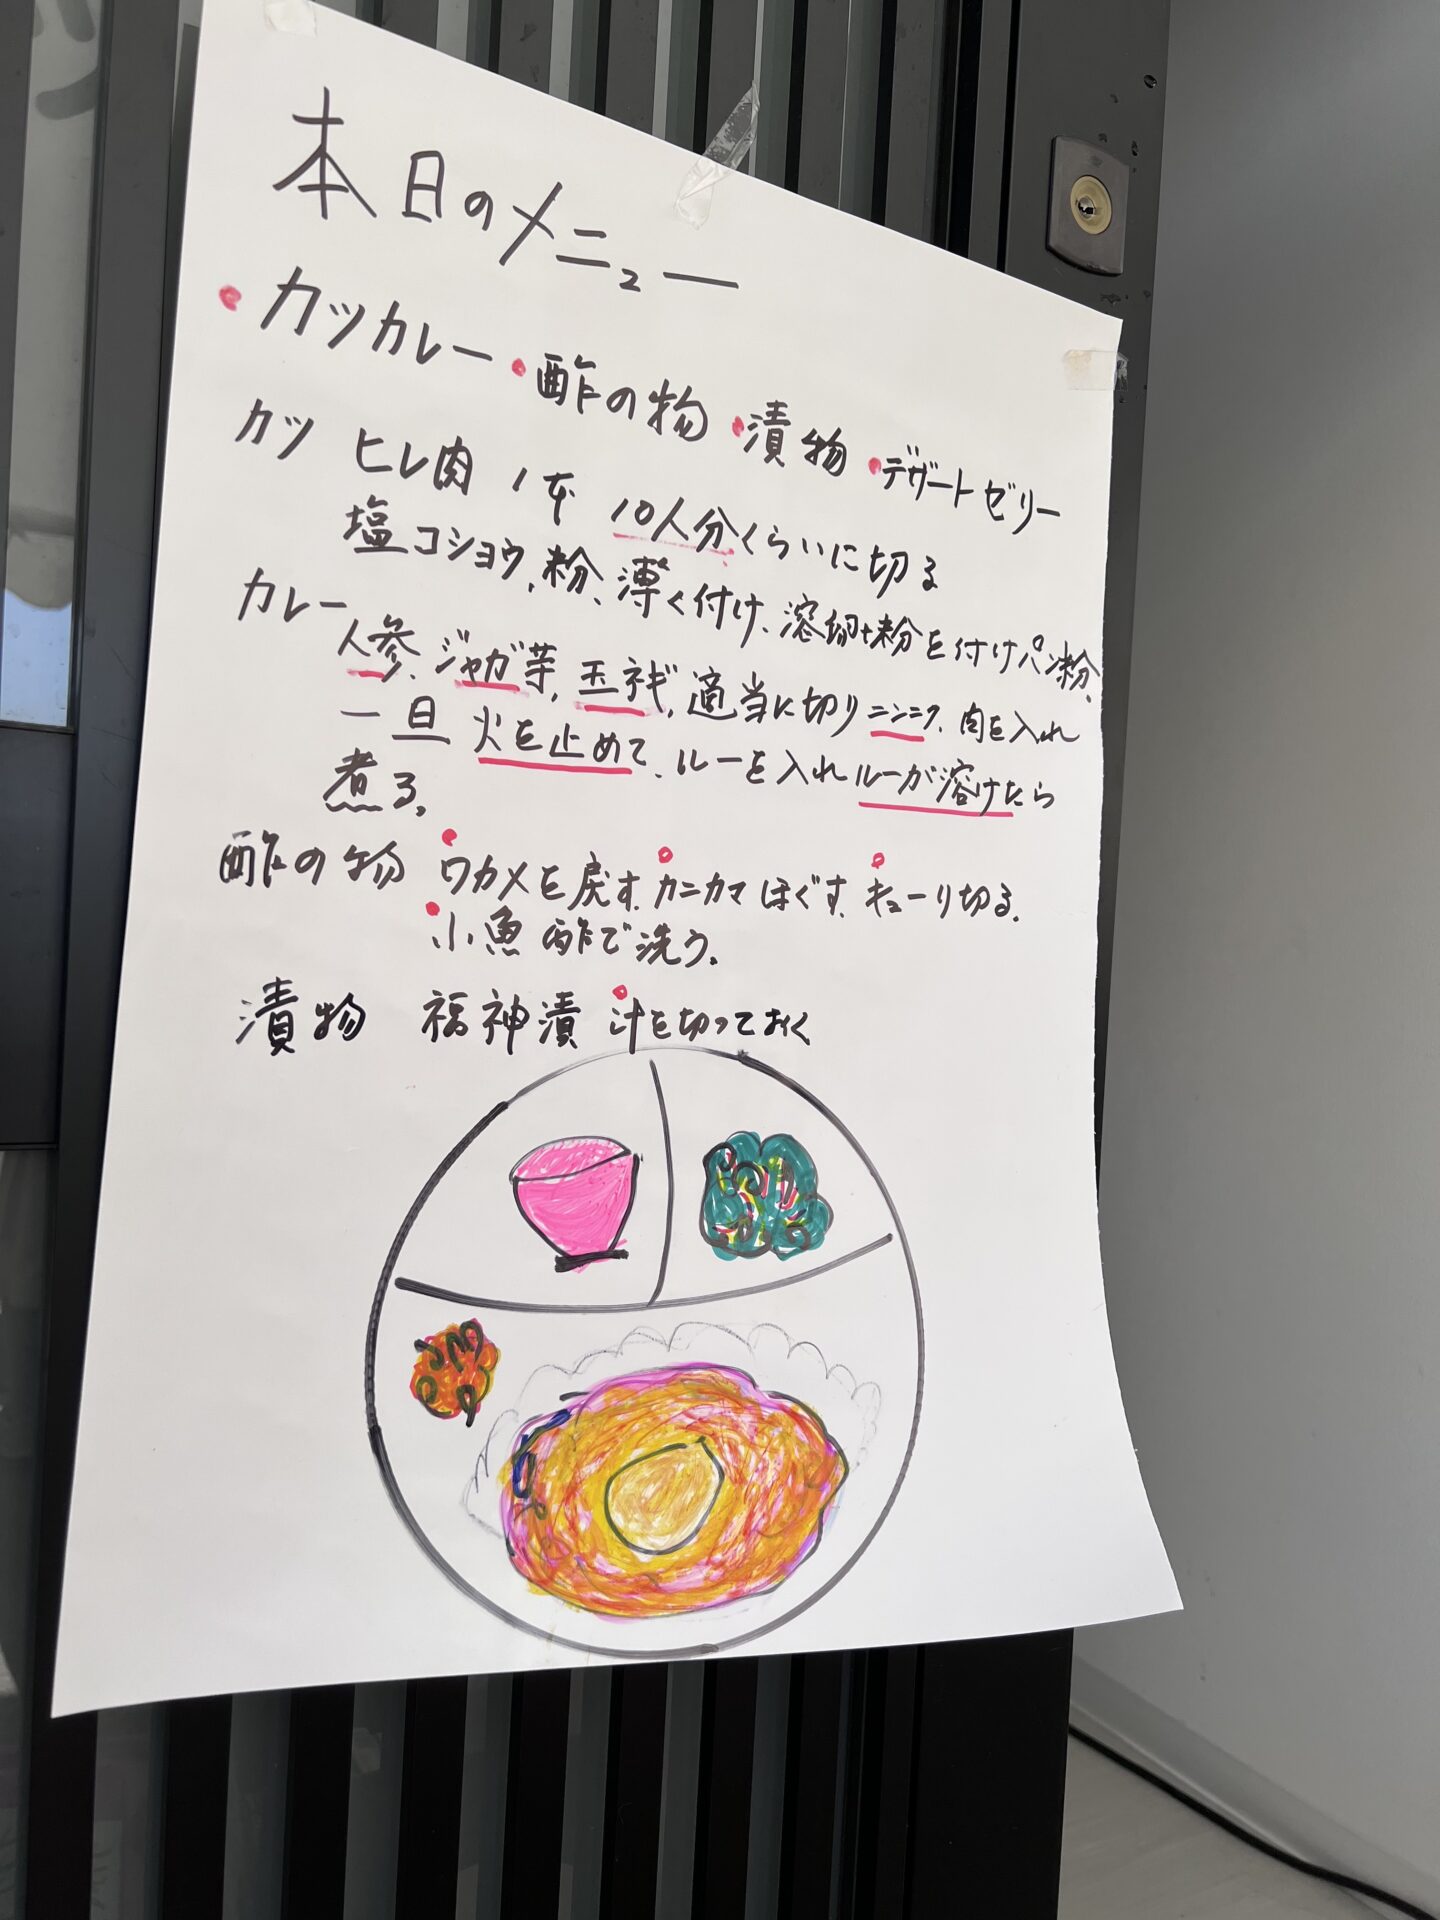 本日のメニュー
・カツカレー・酢の物・漬物・デザートゼリー
カツ ヒレ肉 1本 10人分くらいに切る
塩コショウ、粉、薄く付け、溶卵+粉を付けパン粉、
カレー
人参、ジャガ芋、玉ネギ、適当に切りニンニク、肉を入れ
一旦 火を止めて、ルーを入れルーが溶けたら
煮る。
酢の物 ・ワカメを戻す、・カニカマほぐす、・キューリ切る。
・小魚 酢で洗う。
漬物 福神漬 ・汁を切っておく